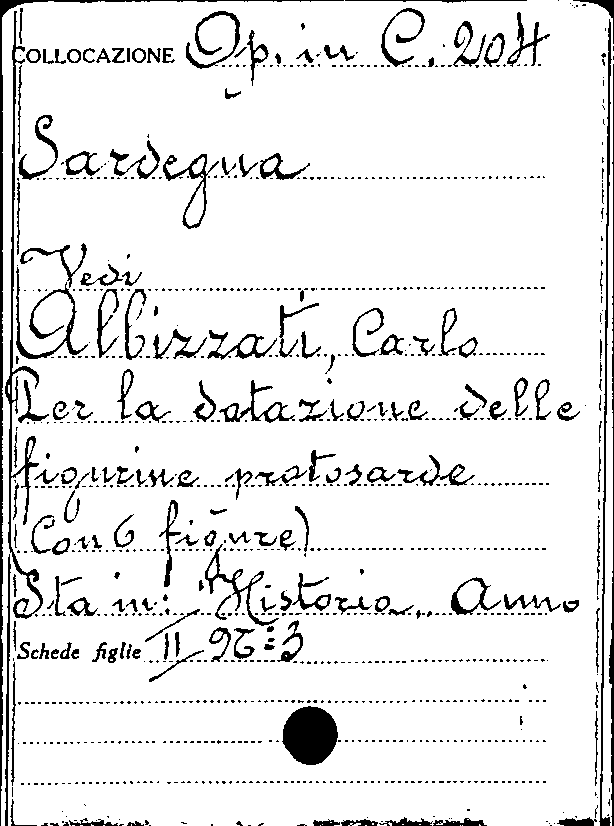 COLLOCAZIONE Op. in C. 204
Sardegna
Vedi
Albizzati, Carlo
Per la datazione delle
figurine protosarde
(Con 6 figure)
Sta in: "Historia„ Anno
Schede figlie II